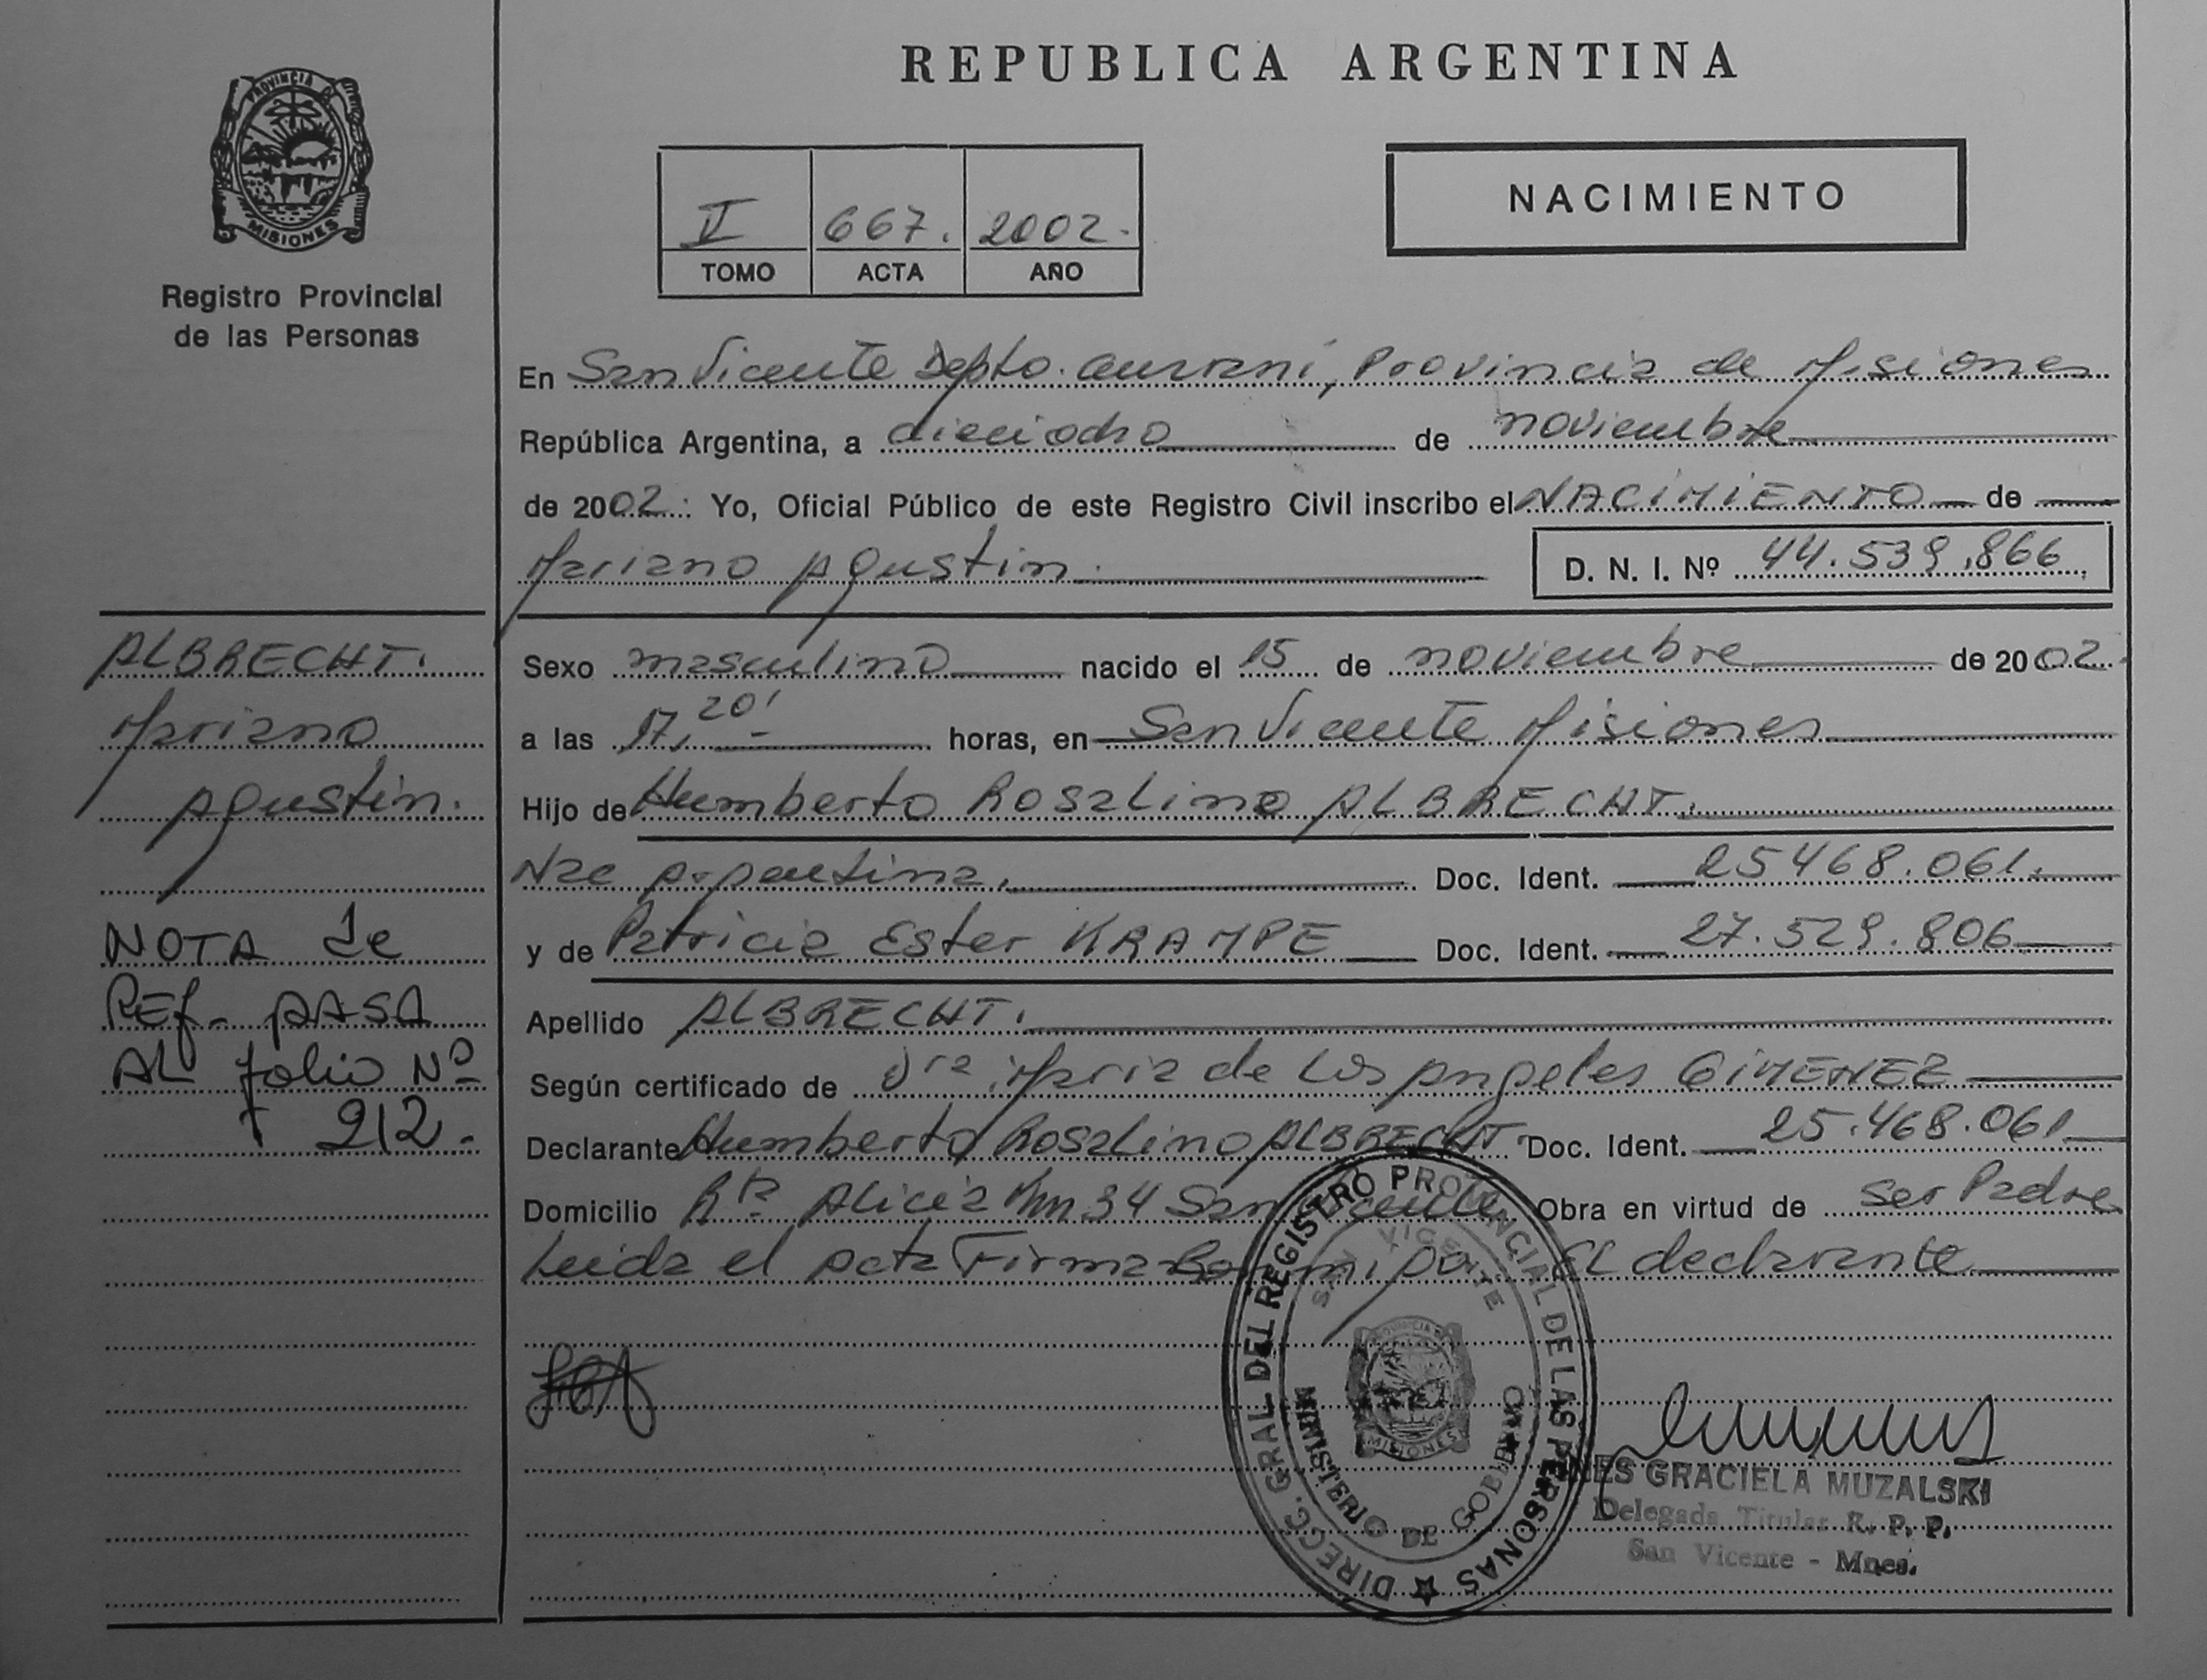 REPUBLICA ARGENTINA
PROVINCIA DE
MISIONES
Registro Provincial
de las Personas
II 667. 2002.
TOMO ACTA AÑO
NACIMIENTO
En San Vicente Depto. Guaraní, Provincia de Misiones
República Argentina, a dieciocho de noviembre
de 2002 : Yo, Oficial Público de este Registro Civil inscribo el NACIMIENTO de
Mariano Agustin. D. N. I. Nº 44.539.866
ALBRECHT.
Mariano
Agustin.
NOTA de
REf- PASA
AL folio Nº
212.
Sexo masculino nacido el 15 de noviembre de 2002.
a las 17,20' horas, en San Vicente Misiones
Hijo de Humberto Rosalino ALBRECHT.
Nac Argentina. Doc. Ident. 25468.061.
y de Patricia Ester KRAMPE Doc. Ident. 27.529.806
Apellido ALBRECHT.
Según certificado de Dra. Maria de Los Angeles GIMENEZ
Declarante Humberto Rosalino ALBRECHT. Doc. Ident. 25.468.061
Domicilio Rta Alicia Km 34 San Vicente Obra en virtud de ser Padre
Leida el acta Firma El declarante
DIRECC. GRAL DEL REGISTRO PROVINCIAL DE LAS PERSONAS
SAN VICENTE
PROVINCIA DE
MISIONES
MINISTERIO DE GOBIERNO
NES GRACIELA MUZALSKI
Delegada Titular R. P. P.
San Vicente - Mnes.